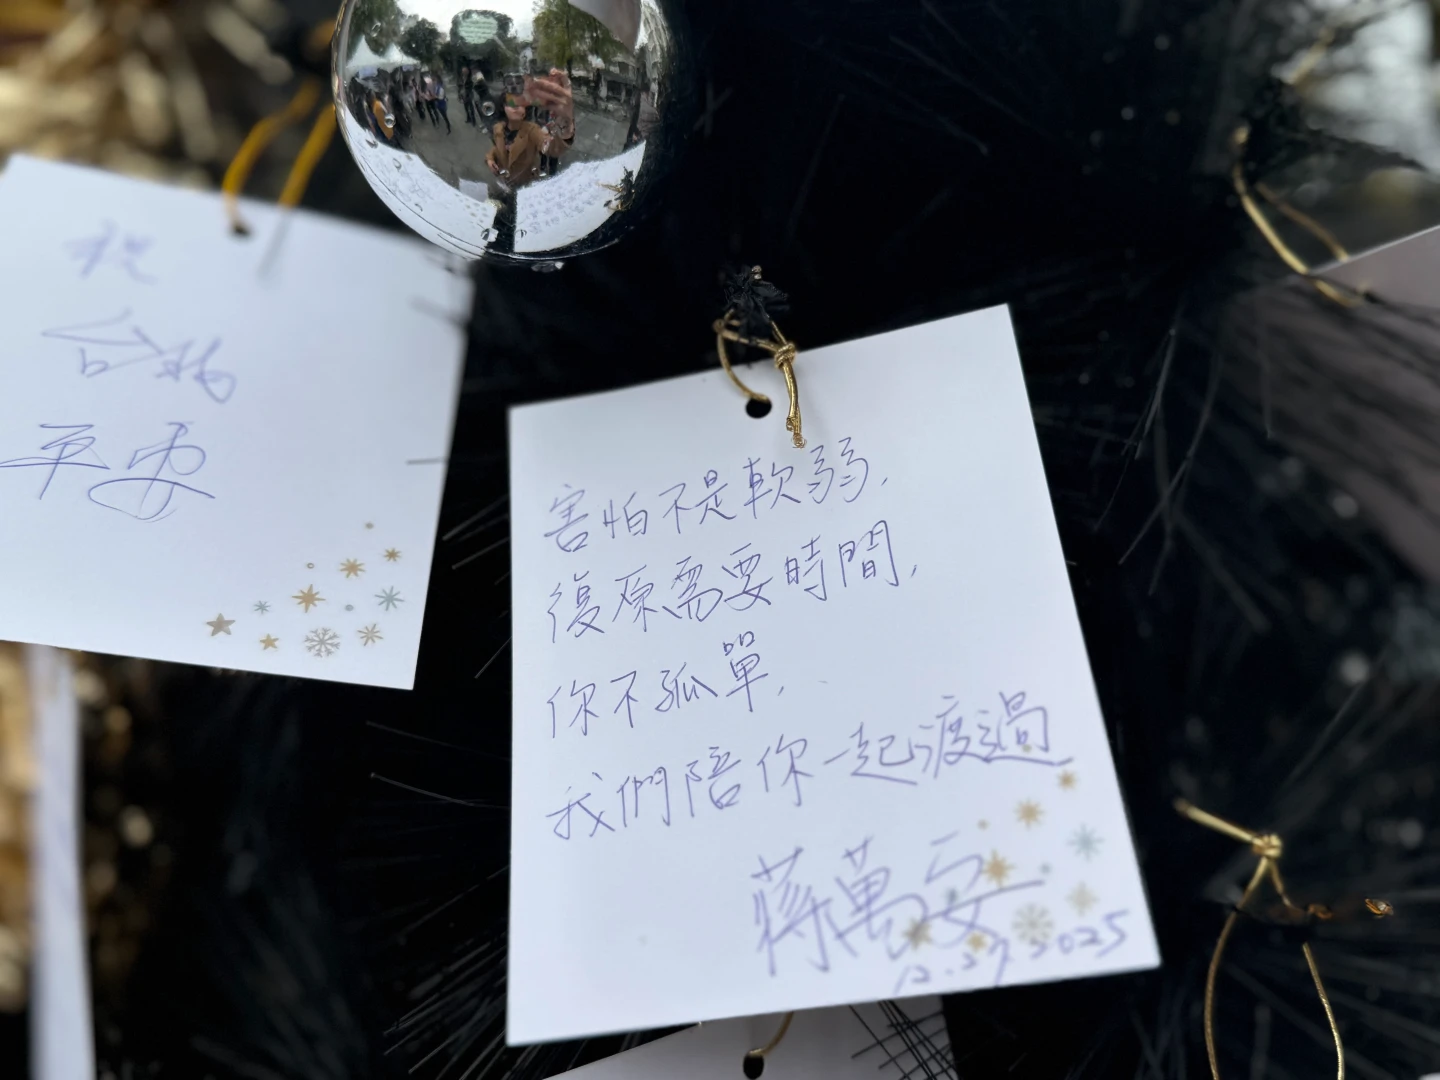 祝
台灣
平安
害怕不是軟弱,
復原需要時間,
你不孤單,
我們陪你一起渡過
蔣萬安
12.27.2025